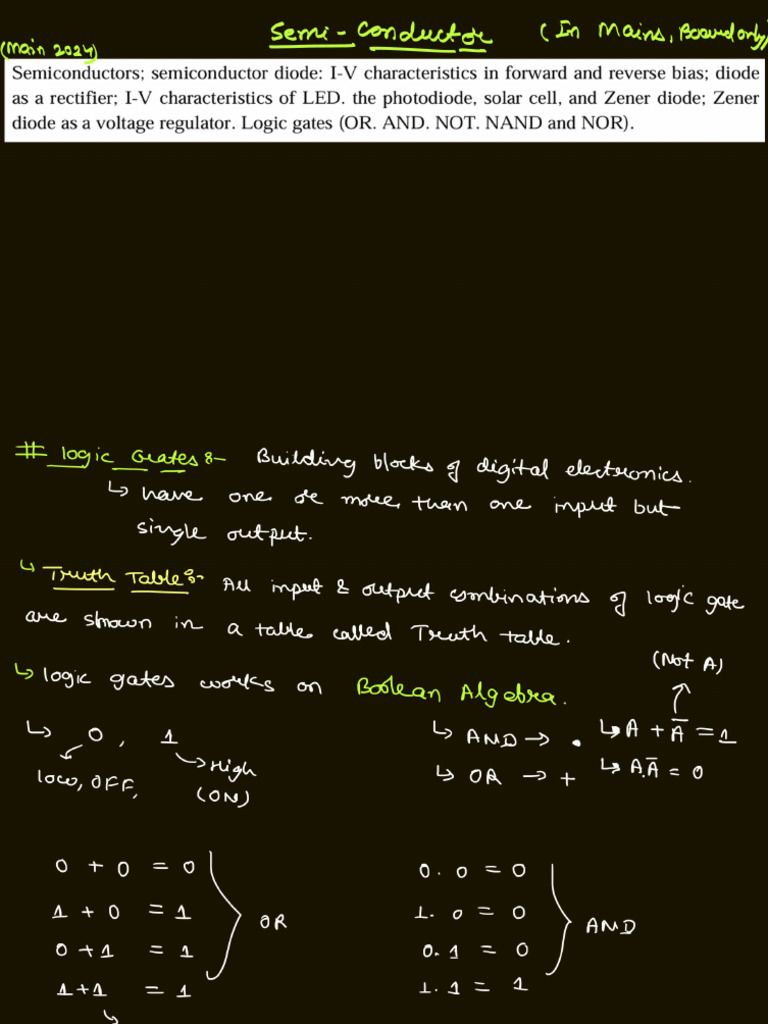 Semi-Conductor (In Mains, Board only)
(Main 2024)
Semiconductors; semiconductor diode: I-V characteristics in forward and reverse bias; diode
as a rectifier; I-V characteristics of LED. the photodiode, solar cell, and Zener diode; Zener
diode as a voltage regulator. Logic gates (OR. AND. NOT. NAND and NOR).
# Logic Gates :- Building blocks of digital electronics.
↳ have one or more than one input but
single output.
↳ Truth Table :- All input & output combinations of logic gate
are shown in a table called Truth table.
(Not A)
↳ logic gates works on Boolean Algebra.
↳ 0, 1
↳ AND → . ↳ A + Ā = 1
High
low, OFF, (ON)
↳ OR → + ↳ A.Ā = 0
0 + 0 = 0 0. 0 = 0
1 + 0 = 1 1. 0 = 0
OR AND
0 + 1 = 1 0. 1 = 0
1 + 1 = 1 1. 1 = 1